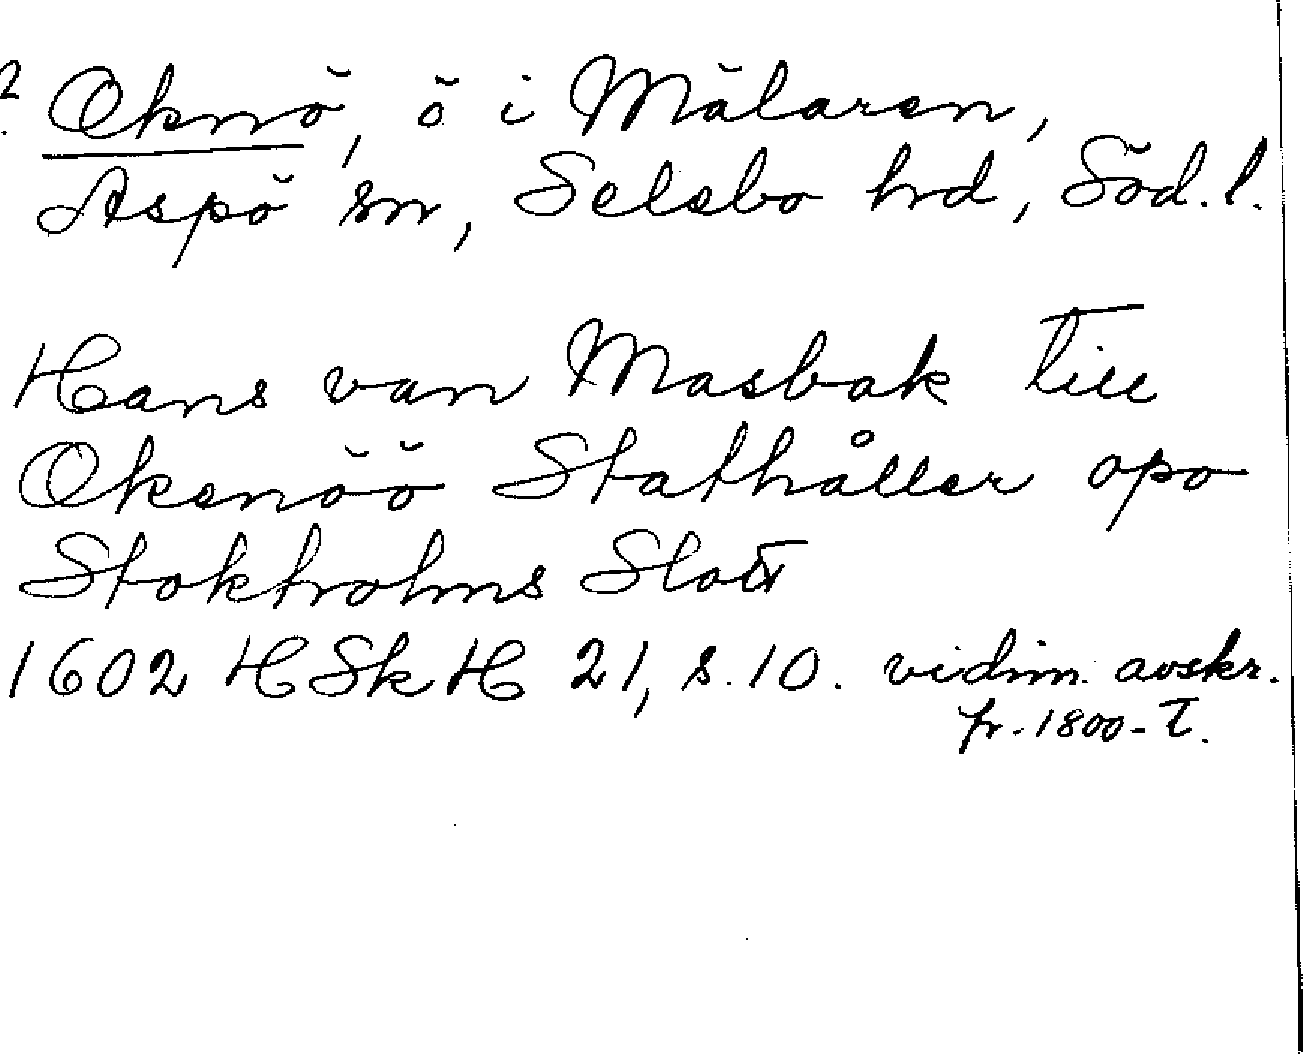 ? Oknö, ö i Mälaren,
Aspö sn, Selebo hrd, Söd. l.
Hans van Masbak till
Okenöö Stathåller opo
Stokholms Slott
1602 HSkH 21, s. 10. vidim. avskr.
fr. 1800-t.